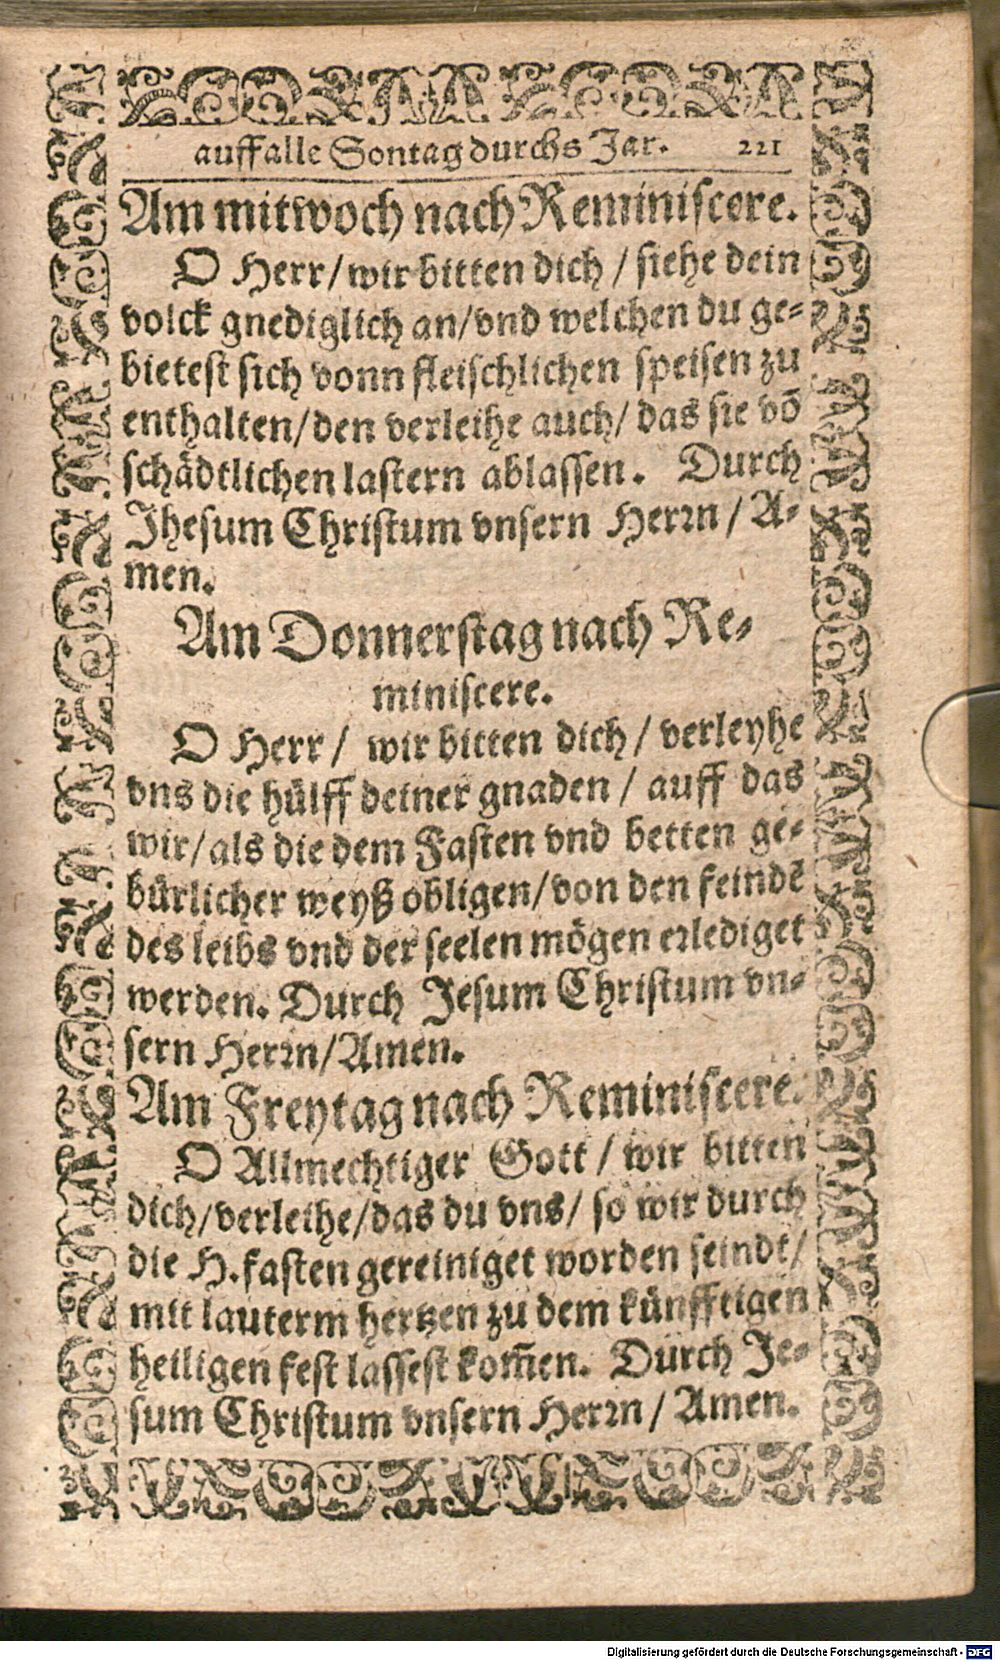 auff alle Sontag durchs Jar. 221
Am mitwoch nach Reminiscere.
O Herr/wir bitten dich/siehe dein
volck gnediglich an/vnd welchen du ge-
bietest sich vonn fleischlichen speisen zu
enthalten/den verleihe auch/das sie vō
schädtlichen lastern ablassen. Durch
Jhesum Christum vnsern Herrn/A-
men.
Am Donnerstag nach Re-
miniscere.
O Herr/ wir bitten dich/verleyhe
vns die hülff deiner gnaden/auff das
wir/als die dem Fasten vnd betten ge-
bürlicher weyß obligen/von den feindē
des leibs vnd der seelen mögen erlediget
werden. Durch Jesum Christum vn-
sern Herrn/Amen.
Am Freytag nach Reminiscere.
O Allmechtiger Gott/wir bitten
dich/verleihe/das du vns/so wir durch
die H. fasten gereiniget worden seindt/
mit lauterm hertzen zu dem künfftigen
heiligen fest lassest kom̄en. Durch Je-
sum Christum vnsern Herrn/Amen.
Digitalisierung gefördert durch die Deutsche Forschungsgemeinschaft - DFG